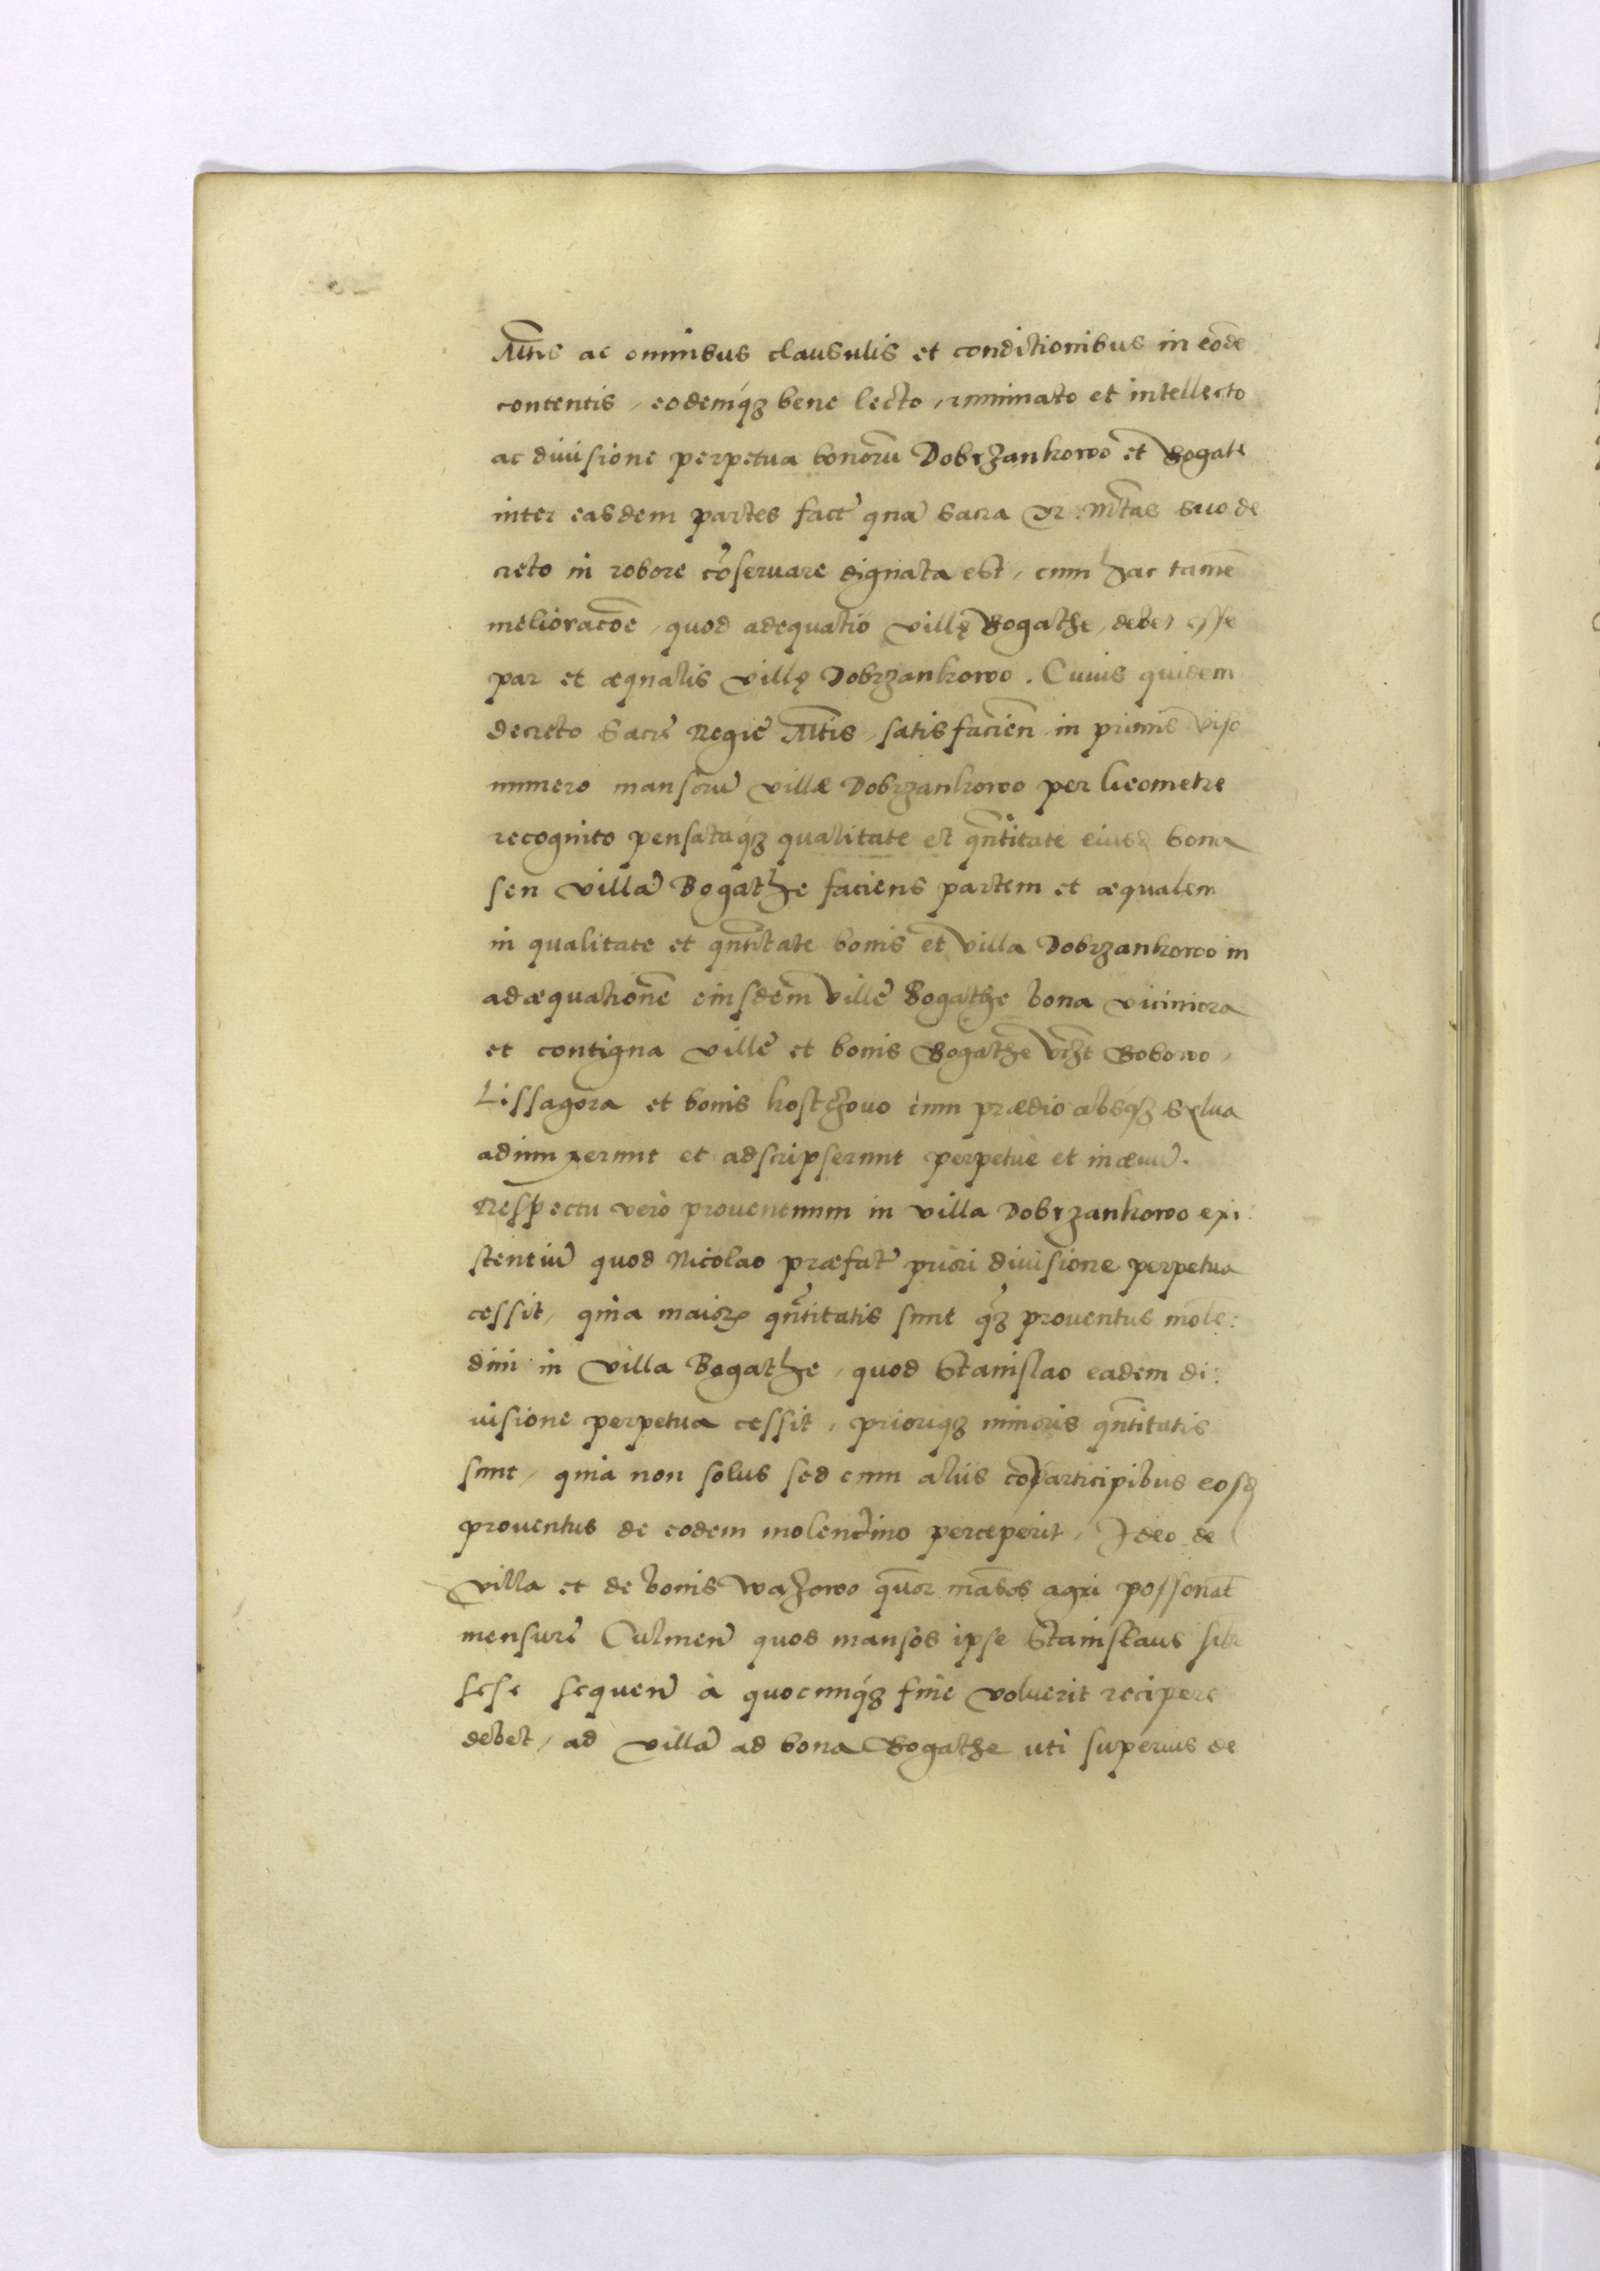 Mtis ac omnibus clausulis et conditionibus in eodē
contentis, eodemq́ꝫ bene lecto, ruminato et intellecto
ac diuisione perpetua bonorū Dobrzankowo et Bogate
inter easdem partes fact̃ qnā Sacra Vr̃ Mtas suo de
creto in robore cōseruare dignata est, cum hac tamē
melioracōe, quod adequatio villę Bogathe, debet esse
par et æqualis villę Dobrzankowo. Cuius quidem
decreto Sacrę Regię Mtis, satisfacień in primis viso
numero mansorū villæ Dobrzankowo per Geometrē
recognito pensataq́ꝫ qualitate et qñtitate eiusd̃ bona
seu villā Bogathe faciens partem et æqualem
in qualitate et qñtitate bonis et villa Dobrzankowo in
adæquationē eiusdem villę Bogathe bona viciniora
et contigua villę et bonis Bogathe vꝫt Bobowo,
Lissagora et bonis Kostzowo cum prædio absq́ꝫ sylua
adiunxerunt et adscripserunt perpetuè et in æuū.
Respectu verò prouentuum in villa Dobrzankowo exi:
stentiū quod Nicolao præfat̃ priori diuisione perpetua
cessit, quia maioris qñtitatis sunt qꝫ prouentus mole:
dini in villa Bogathe, quod Stanislao eadem di:
uisione perpetua cessit, prioriqꝫ minoris qñtitatis
sunt, quia non solus sed cum aliis cōparticipibus eosd̃
prouentus de eodem molendino perceperit, Ideo de
villa et de bonis Wazowo quor mãsos agri possonat̃
mensurę Culmeń quos mansos ipse Stanislaus sibi
sese sequeń à quocunq́ꝫ fine voluerit recipere
debet, ad villā ad bona Bogathe uti superius de